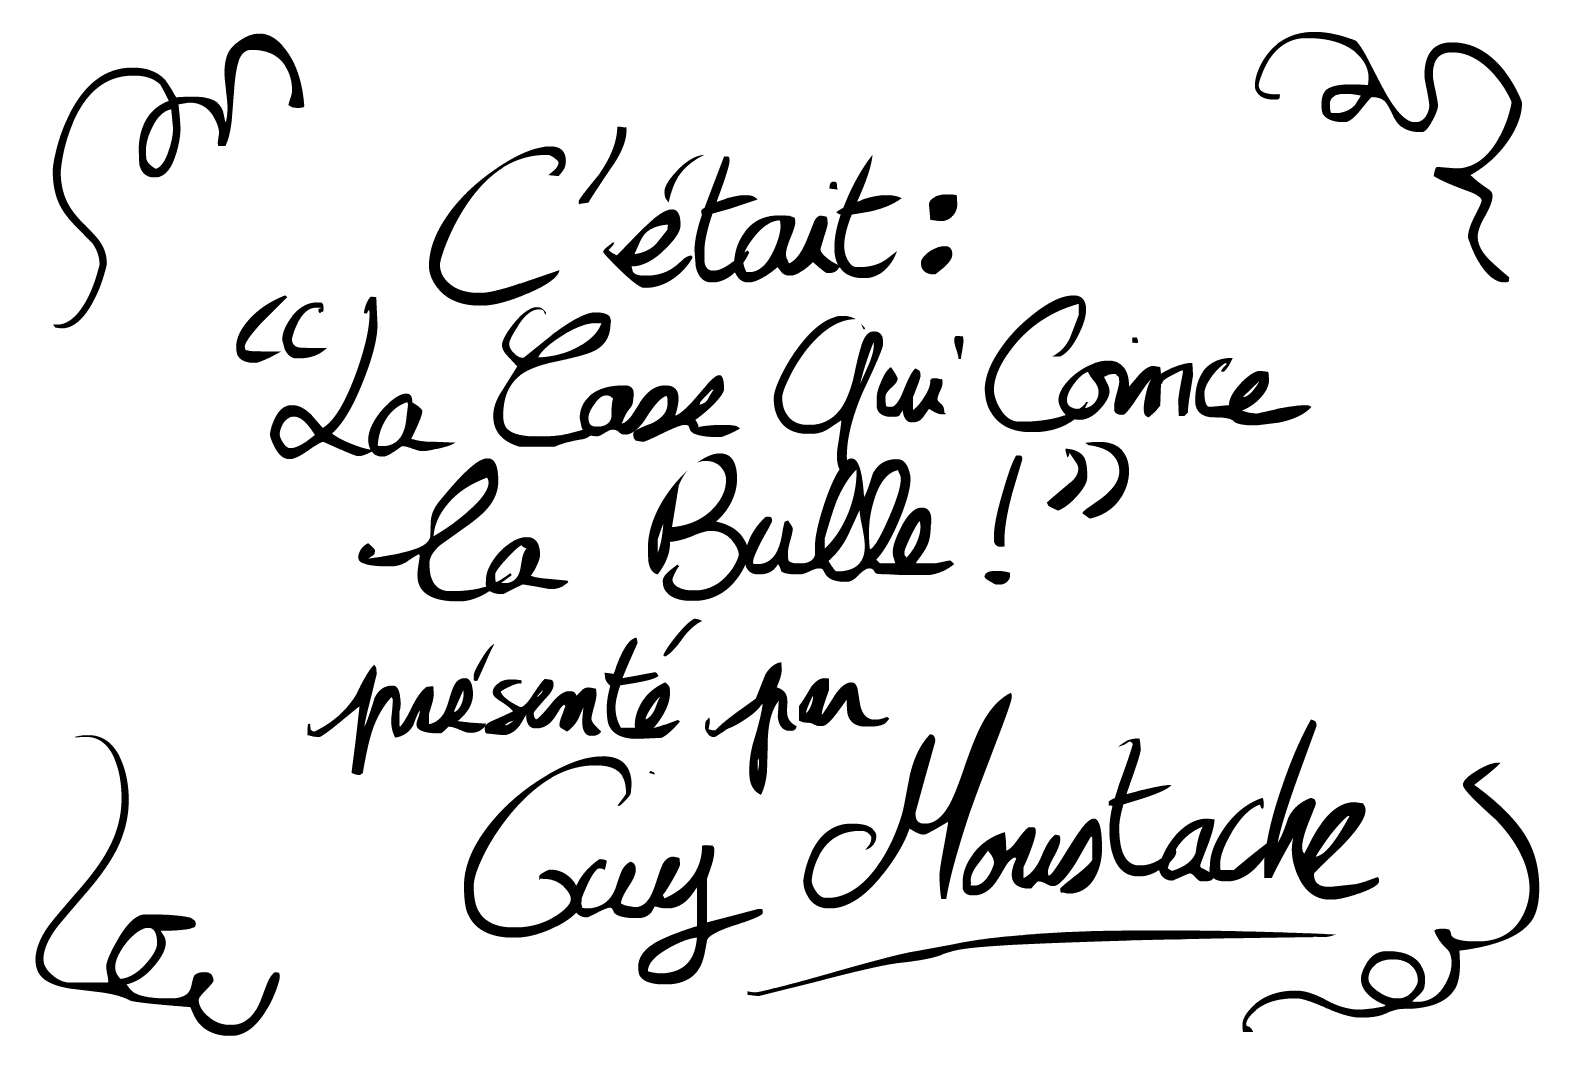 C'était :
“La Case Qui Coince
la Bulle !”
présenté par
Guy Moustache